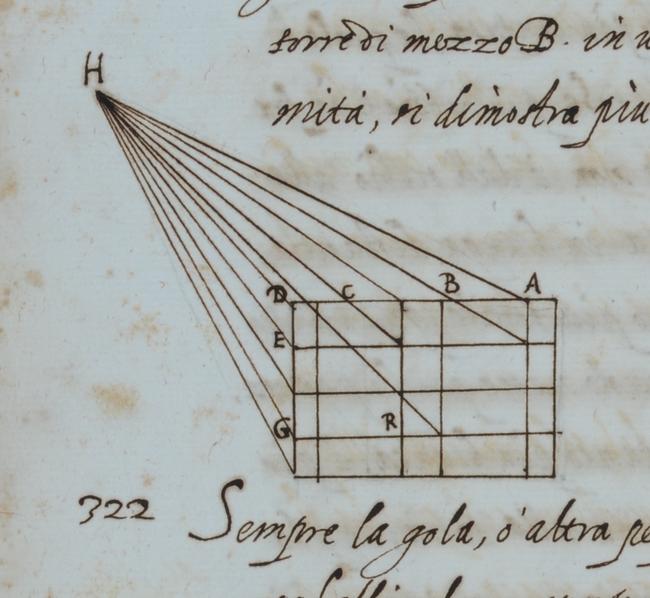 torre di mezzo B. in
mità, si dimostra più
H
D C B A
E
G R
322 Sempre la gola, o' altra